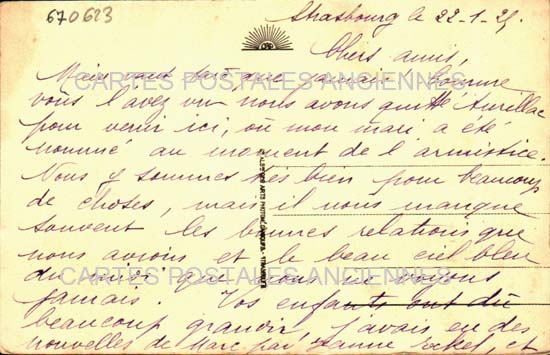 670623
Strasbourg le 22-1-25.
Chers amis,
Mieux vaut tard que jamais. Comme
vous l'avez vu nous avons quitté Aurillac
pour venir ici, où mon mari a été
nommé au moment de l'armistice.
Nous y sommes très bien pour beaucoup
de choses, mais il nous manque
souvent les bonnes relations que
nous avions et le beau ciel bleu
du midi que nous ne voyons
jamais. Vos enfants ont dû
beaucoup grandir. J'avais eu des
nouvelles de Marc par Jeanne et
CARTES POSTALES ANCIENNES
CARTES POSTALES ANCIENNES